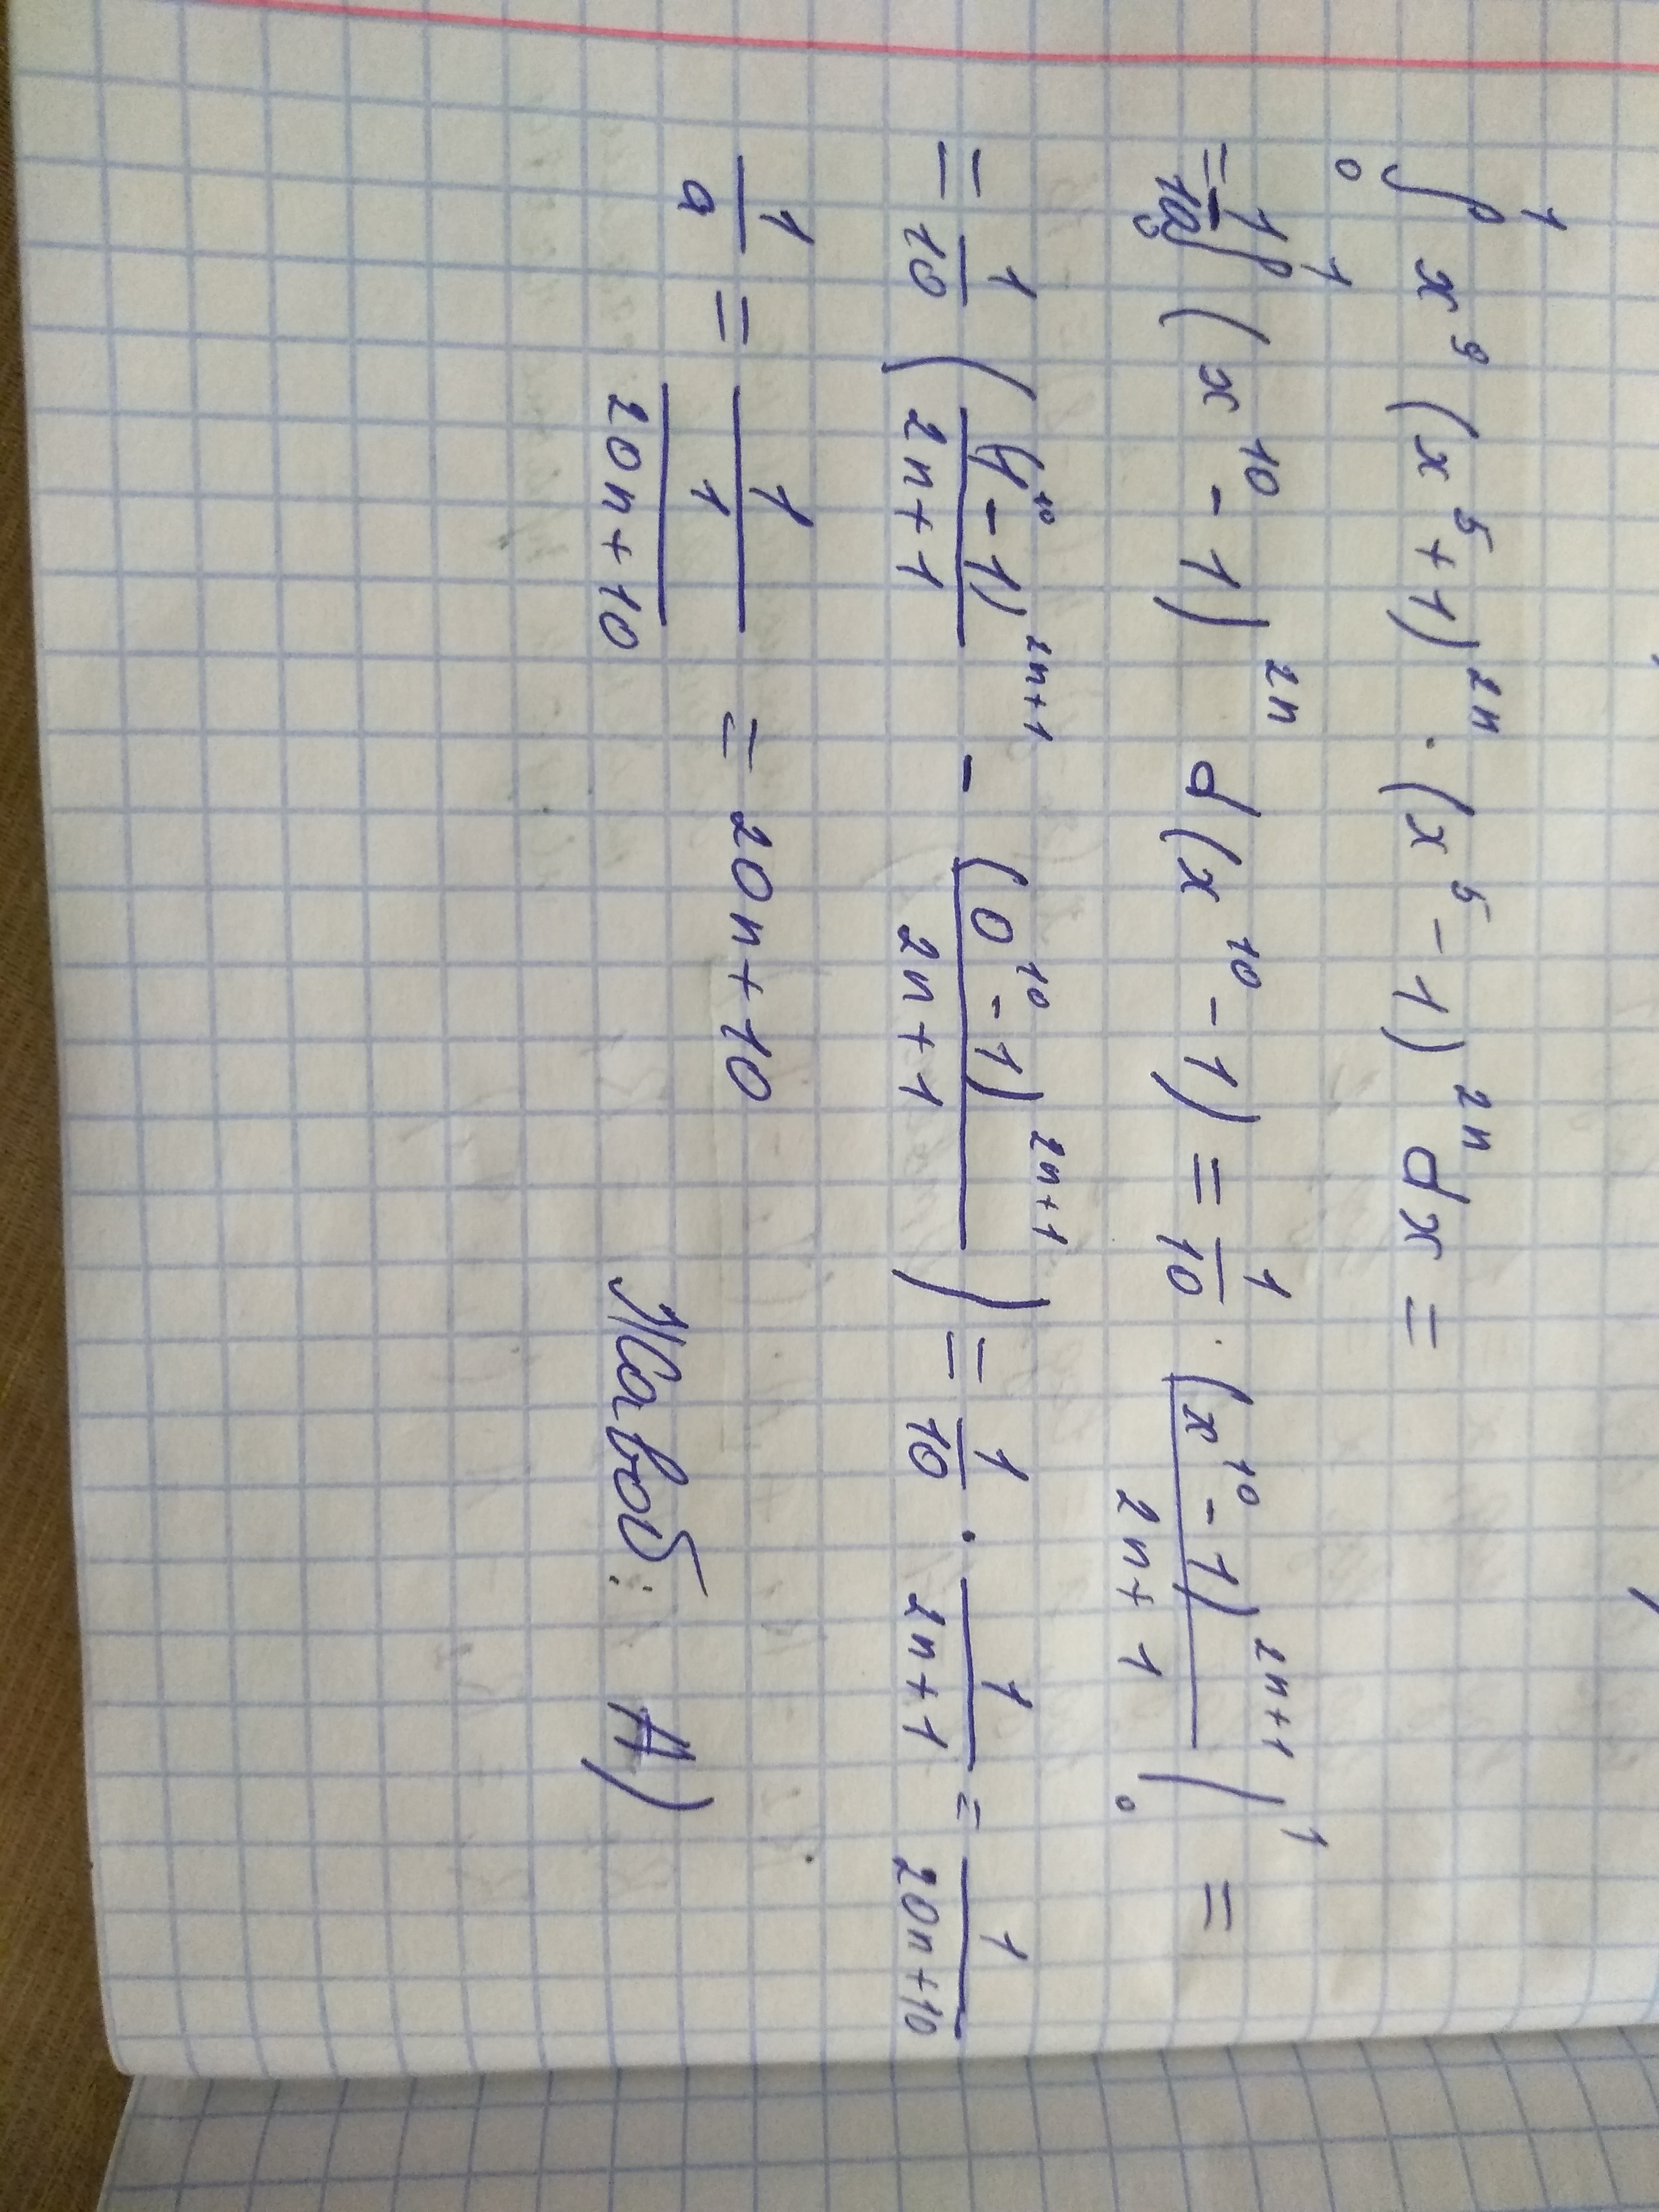 ∫₀¹ x⁹ (x⁵+1)²ⁿ · (x⁵-1)²ⁿ dx =
= 1/10 ∫₀¹ (x¹⁰-1)²ⁿ d(x¹⁰-1) = 1/10 · (x¹⁰-1)²ⁿ⁺¹/(2n+1) |₀¹ =
= 1/10 ((1¹⁰-1)²ⁿ⁺¹/(2n+1) - (0¹⁰-1)²ⁿ⁺¹/(2n+1)) = 1/10 · 1/(2n+1) = 1/(20n+10)
1/a = 1/(1/(20n+10)) = 20n+10
Жавоб: A)